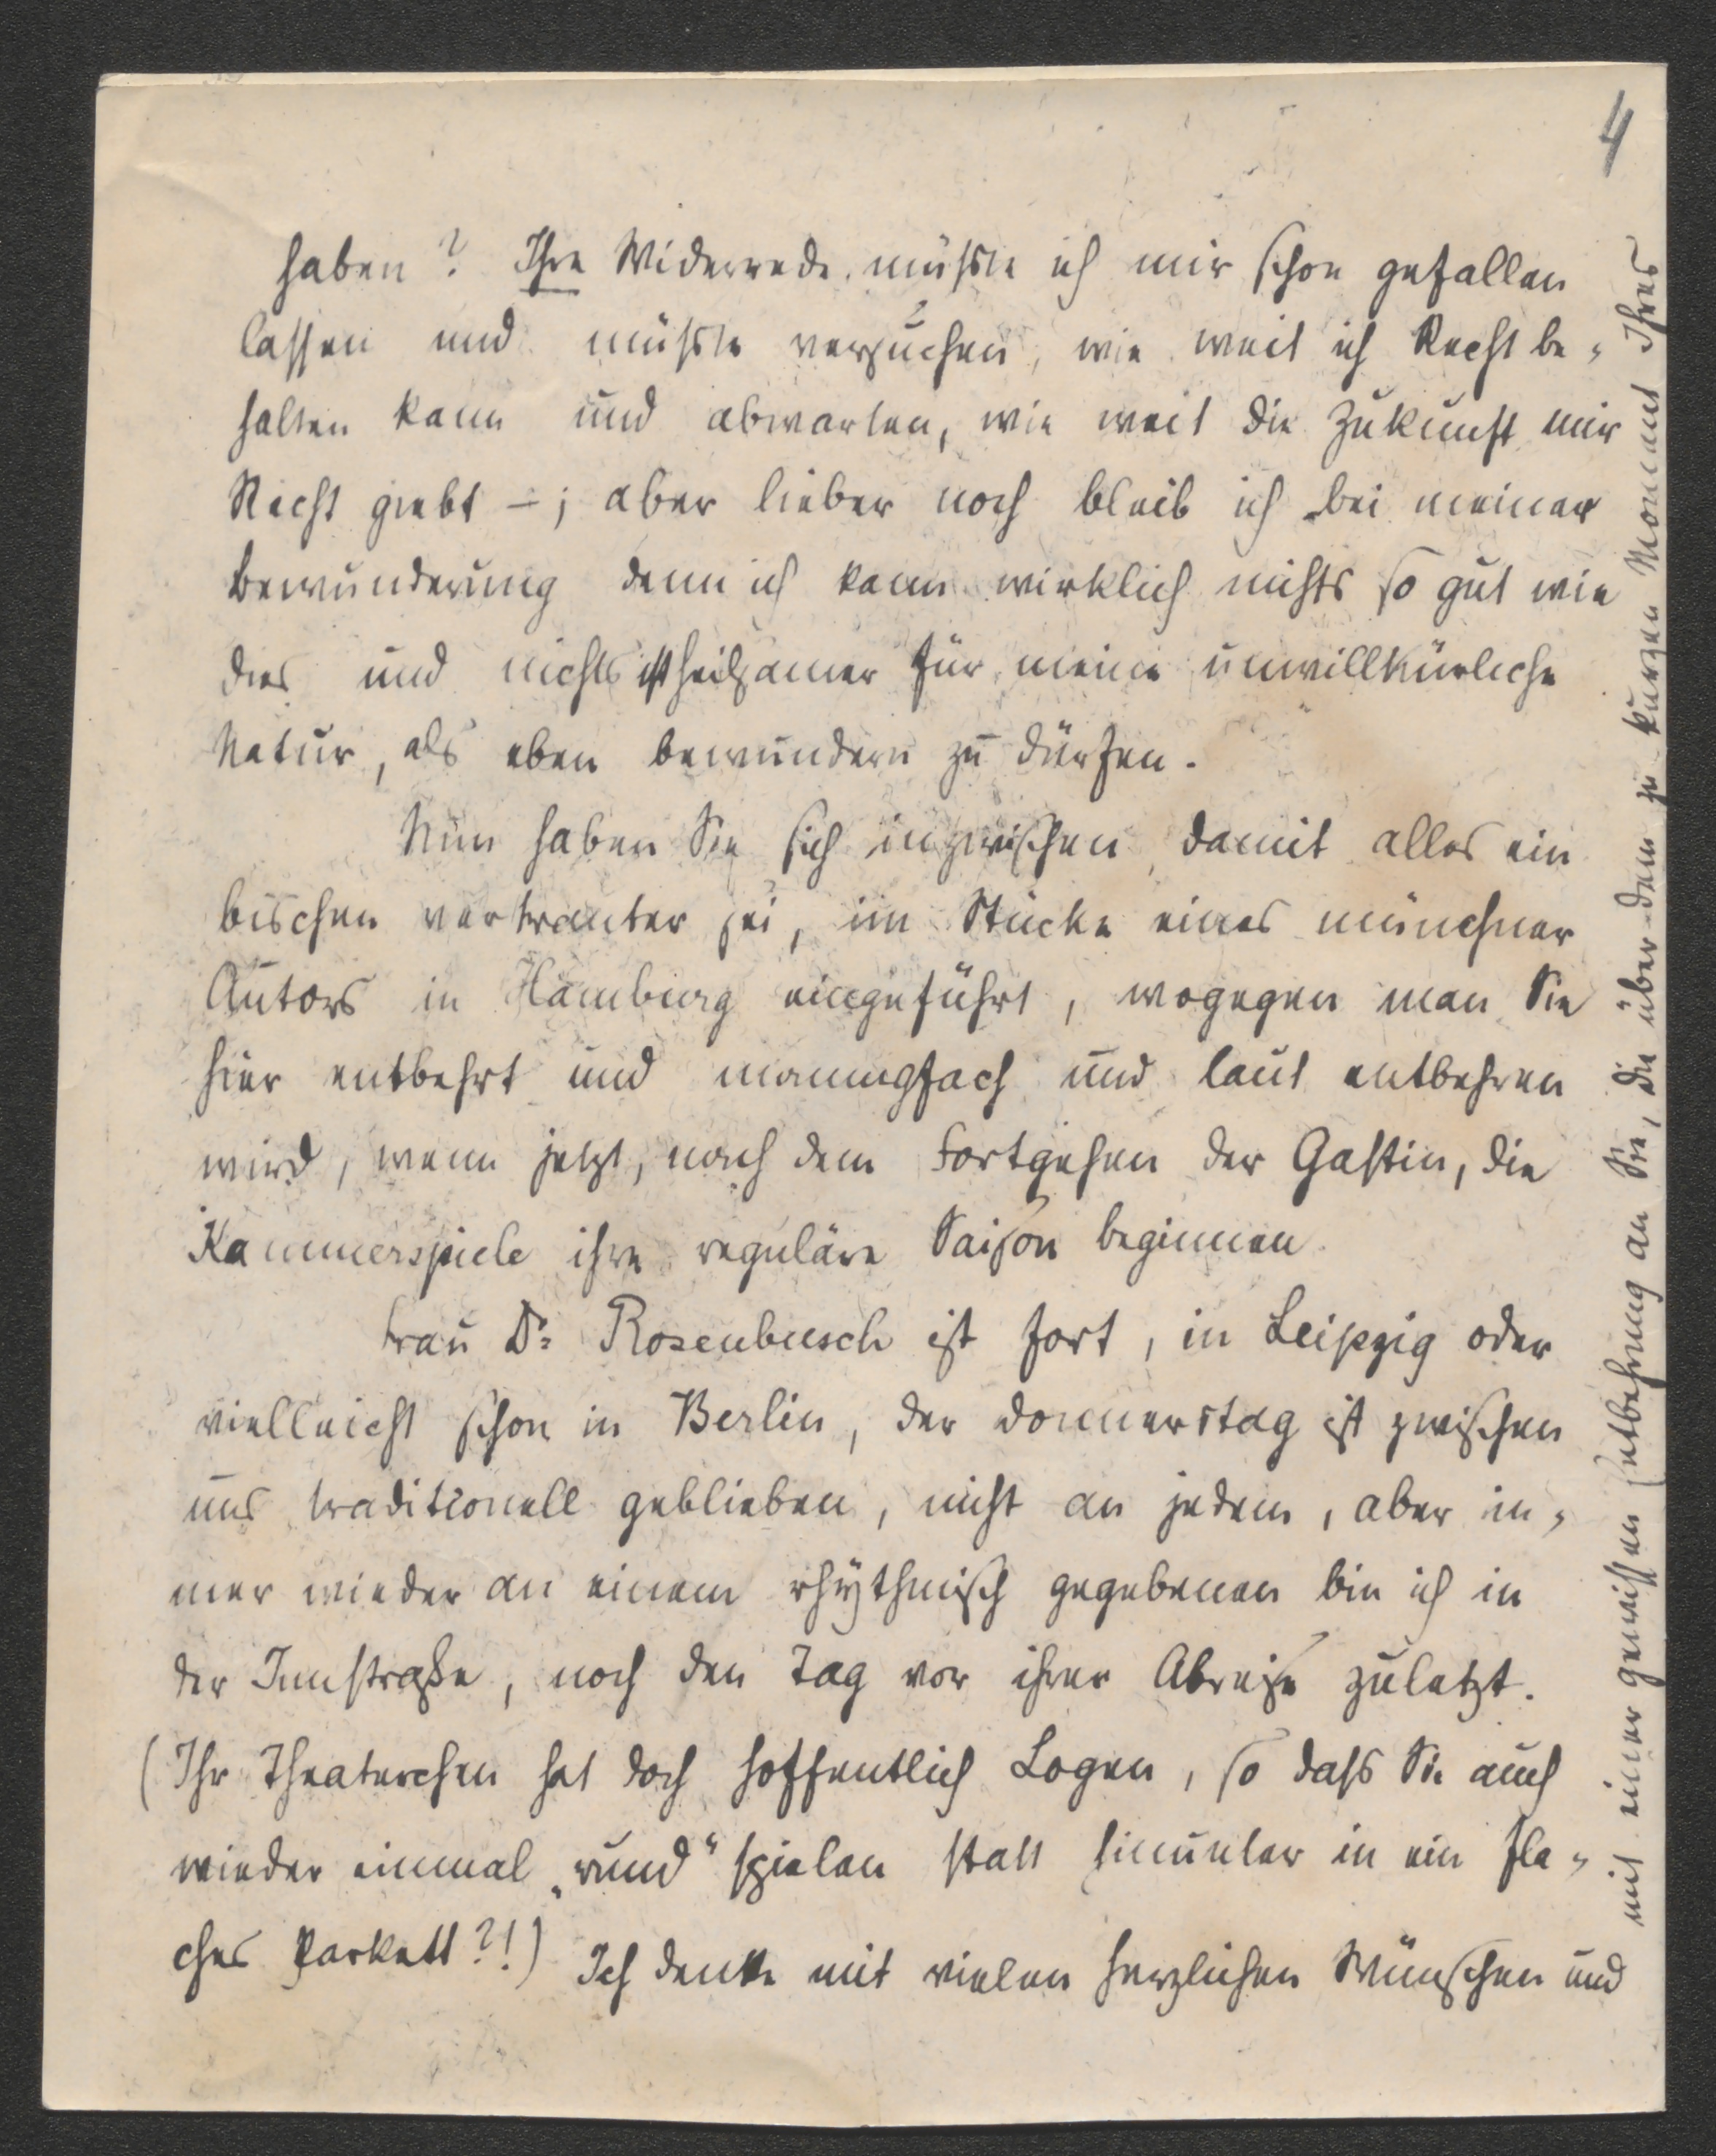 4
haben? Ihre Widerrede müsste ich mir schon gefallen
lassen und müsste versuchen, wie weit ich Recht be-
halten kann und abwarten, wie weit die Zukunft mir
Recht giebt –; aber lieber noch bleib ich bei meiner
Bewunderung denn ich kann wirklich nichts so gut wie
dies und nichts ist heilsamer für meine unwillkürliche
Natur, als eben bewundern zu dürfen.
Nun haben Sie sich inzwischen, damit alles ein
bischen vertrauter sei, im Stücke eines münchner
Autors in Hamburg eingeführt, wogegen man Sie
hier entbehrt und mannigfach und laut entbehren
wird, wenn jetzt, nach dem Fortgehen der Gastin, die
Kammerspiele ihre reguläre Saison beginnen.
Frau Dr. Rosenbusch ist fort, in Leipzig oder
vielleicht schon in Berlin, der Donnerstag ist zwischen
uns traditionell geblieben, nicht an jedem, aber im-
mer wieder an einem rhythmisch gegebenen bin ich in
der Innstraße, noch den Tag vor ihrer Abreise zuletzt.
(Ihr Theaterchen hat doch hoffentlich Logen, so dass Sie auch
wieder einmal „rund“ spielen statt hinunter in ein fla-
ches Parkett?!) Ich denke mit vielen herzlichen Wünschen und
mit einer gewissen Entbehrung an Sie, die über dem zu kurzen Moment Ihres